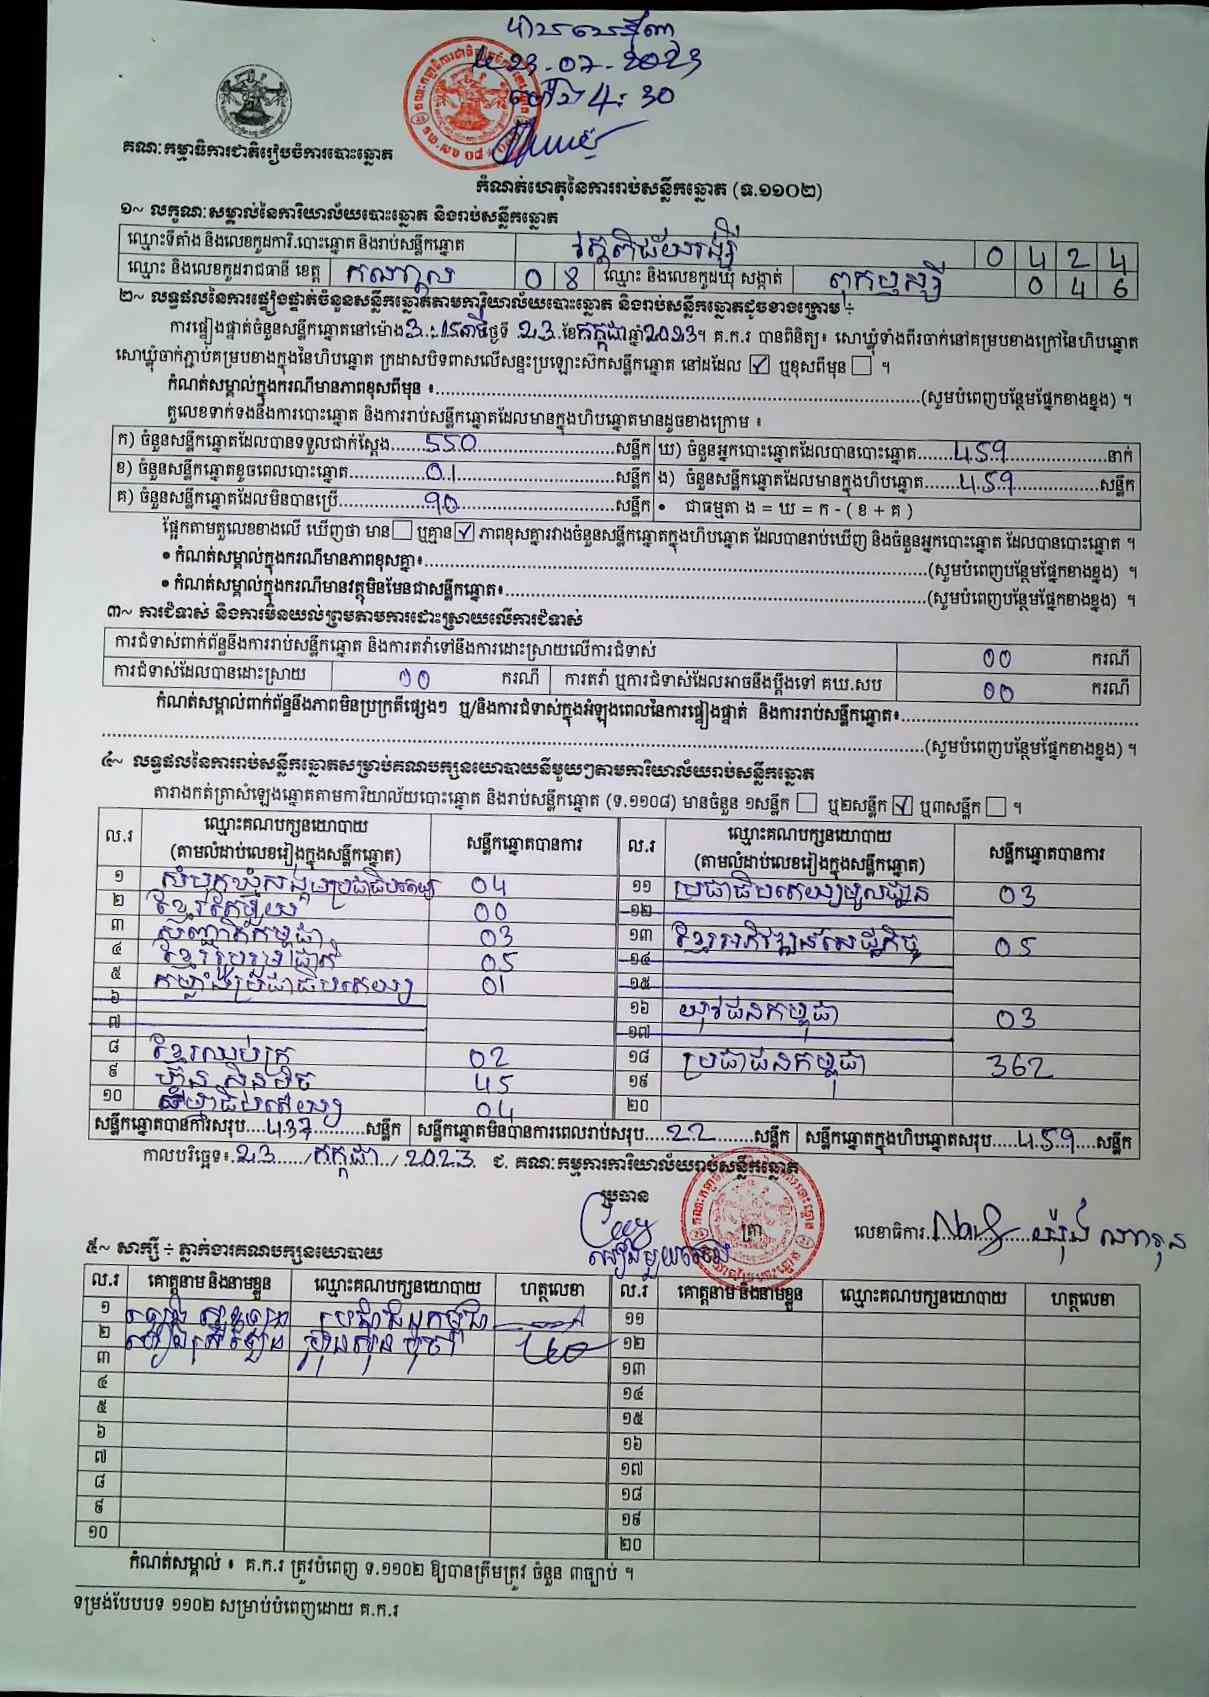 បានឃើញ
23.07.2023
ម៉ោង 4:30
គណៈកម្មាធិការជាតិរៀបចំការបោះឆ្នោត
កំណត់ហេតុនៃការរាប់សន្លឹកឆ្នោត (ទ.១១០២)
១~ លក្ខណៈសម្គាល់នៃការិយាល័យបោះឆ្នោត និងរាប់សន្លឹកឆ្នោត
ឈ្មោះទីតាំង និងលេខកូដការិ.បោះឆ្នោត និងរាប់សន្លឹកឆ្នោត 0 4 2 4
ឈ្មោះ និងលេខកូដរាជធានី ខេត្ត កណ្តាល 0 8 ឈ្មោះ និងលេខកូដឃុំ សង្កាត់ 0 4 6
២~ លទ្ធផលនៃការផ្ទៀងផ្ទាត់ចំនួនសន្លឹកឆ្នោតតាមការិយាល័យបោះឆ្នោត និងរាប់សន្លឹកឆ្នោតដូចខាងក្រោម ÷
ការផ្ទៀងផ្ទាត់ចំនួនសន្លឹកឆ្នោតនៅម៉ោង 3:15នាទី ថ្ងៃទី 23 ខែ កក្កដា ឆ្នាំ 2023។ គ.ក.រ បានពិនិត្យ៖ សោឃ្លុំទាំងពីរចាក់នៅគម្របខាងក្រៅនៃហិបឆ្នោត
សោឃ្លុំចាក់ភ្ជាប់គម្របខាងក្នុងនៃហិបឆ្នោត ក្រដាសបិទពាសលើសន្ទះប្រឡោះស៊កសន្លឹកឆ្នោត នៅដដែល ☑ ឬខុសពីមុន ☐ ។
កំណត់សម្គាល់ក្នុងករណីមានភាពខុសពីមុន ៖..........(សូមបំពេញបន្ថែមផ្នែកខាងខ្នង) ។
តួលេខទាក់ទងនឹងការបោះឆ្នោត និងការរាប់សន្លឹកឆ្នោតដែលមានក្នុងហិបឆ្នោតមានដូចខាងក្រោម ៖
ក) ចំនួនសន្លឹកឆ្នោតដែលបានទទួលជាក់ស្តែង.....550.....សន្លឹក ឃ) ចំនួនអ្នកបោះឆ្នោតដែលបានបោះឆ្នោត.....459.....នាក់
ខ) ចំនួនសន្លឹកឆ្នោតខូចពេលបោះឆ្នោត.....01.....សន្លឹក ង) ចំនួនសន្លឹកឆ្នោតដែលមានក្នុងហិបឆ្នោត.....459.....សន្លឹក
គ) ចំនួនសន្លឹកឆ្នោតដែលមិនបានប្រើ.....90.....សន្លឹក • ជាធម្មតា ង = ឃ = ក - ( ខ + គ )
ផ្អែកតាមតួលេខខាងលើ ឃើញថា មាន ☐ ឬគ្មាន ☑ ភាពខុសគ្នារវាងចំនួនសន្លឹកឆ្នោតក្នុងហិបឆ្នោត ដែលបានរាប់ឃើញ និងចំនួនអ្នកបោះឆ្នោត ដែលបានបោះឆ្នោត ។
• កំណត់សម្គាល់ក្នុងករណីមានភាពខុសគ្នា៖..........(សូមបំពេញបន្ថែមផ្នែកខាងខ្នង) ។
• កំណត់សម្គាល់ក្នុងករណីមានវត្ថុមិនមែនជាសន្លឹកឆ្នោត៖..........(សូមបំពេញបន្ថែមផ្នែកខាងខ្នង) ។
៣~ ការជំទាស់ និងការមិនយល់ព្រមតាមការដោះស្រាយលើការជំទាស់
ការជំទាស់ពាក់ព័ន្ធនឹងការរាប់សន្លឹកឆ្នោត និងការតវ៉ាទៅនឹងការដោះស្រាយលើការជំទាស់ 00 ករណី
ការជំទាស់ដែលបានដោះស្រាយ 00 ករណី ការតវ៉ា ឬការជំទាស់ដែលអាចនឹងប្តឹងទៅ គឃ.សប 00 ករណី
កំណត់សម្គាល់ពាក់ព័ន្ធនឹងភាពមិនប្រក្រតីផ្សេងៗ ឬ/និងការជំទាស់ក្នុងអំឡុងពេលនៃការផ្ទៀងផ្ទាត់ និងការរាប់សន្លឹកឆ្នោត៖..........
..........(សូមបំពេញបន្ថែមផ្នែកខាងខ្នង) ។
៤~ លទ្ធផលនៃការរាប់សន្លឹកឆ្នោតសម្រាប់គណបក្សនយោបាយនីមួយៗតាមការិយាល័យរាប់សន្លឹកឆ្នោត
តារាងកត់ត្រាសំឡេងឆ្នោតតាមការិយាល័យបោះឆ្នោត និងរាប់សន្លឹកឆ្នោត (ទ.១១០៨) មានចំនួន ១សន្លឹក ☐ ឬ២សន្លឹក ☑ ឬ៣សន្លឹក ☐ ។
ល.រ ឈ្មោះគណបក្សនយោបាយ សន្លឹកឆ្នោតបានការ ល.រ ឈ្មោះគណបក្សនយោបាយ សន្លឹកឆ្នោតបានការ
(តាមលំដាប់លេខរៀងក្នុងសន្លឹកឆ្នោត) (តាមលំដាប់លេខរៀងក្នុងសន្លឹកឆ្នោត)
១ សំបុកឃ្មុំសង្គមប្រជាធិបតេយ្យ 04 ១១ ប្រជាធិបតេយ្យមូលដ្ឋាន 03
២ ខ្មែរតែមួយ 00 ១២
៣ សញ្ជាតិកម្ពុជា 03 ១៣ ខ្មែរអភិវឌ្ឍន៍សេដ្ឋកិច្ច 05
៤ ខ្មែររួបរួមជាតិ 05 ១៤
៥ កម្លាំងប្រជាធិបតេយ្យ 01 ១៥
៦ ១៦ យុវជនកម្ពុជា 03
៧ ១៧
៨ ខ្មែរឈប់ក្រ 02 ១៨ ប្រជាជនកម្ពុជា 362
៩ ហ៊្វុនស៊ិនប៉ិច 45 ១៩
១០ ធម្មាធិបតេយ្យ 04 ២០
សន្លឹកឆ្នោតបានការសរុប....437....សន្លឹក សន្លឹកឆ្នោតមិនបានការពេលរាប់សរុប....22....សន្លឹក សន្លឹកឆ្នោតក្នុងហិបឆ្នោតសរុប....459....សន្លឹក
កាលបរិច្ឆេទ៖ 23 / កក្កដា / 2023 ជ. គណៈកម្មការការិយាល័យរាប់សន្លឹកឆ្នោត
ប្រធាន ត្រា លេខាធិការ
៥~ សាក្សី ÷ ភ្នាក់ងារគណបក្សនយោបាយ
ល.រ គោត្តនាម និងនាមខ្លួន ឈ្មោះគណបក្សនយោបាយ ហត្ថលេខា ល.រ គោត្តនាម និងនាមខ្លួន ឈ្មោះគណបក្សនយោបាយ ហត្ថលេខា
១ ប្រជាជនកម្ពុជា ១១
២ ១២
៣ ១៣
៤ ១៤
៥ ១៥
៦ ១៦
៧ ១៧
៨ ១៨
៩ ១៩
១០ ២០
កំណត់សម្គាល់ ៖ គ.ក.រ ត្រូវបំពេញ ទ.១១០២ ឱ្យបានត្រឹមត្រូវ ចំនួន ៣ច្បាប់ ។
ទម្រង់បែបបទ ១១០២ សម្រាប់បំពេញដោយ គ.ក.រ